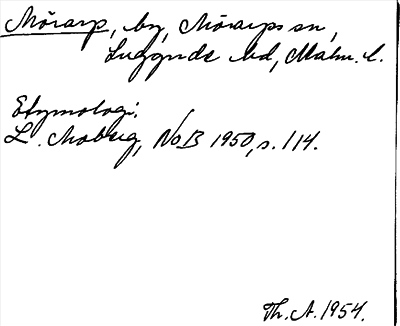 Mörarp, by, Mörarps sn,
Luggude hd, Malm. l.
Etymologi:
L. Moberg, NoB 1950, s. 114.
Th. A. 1954.